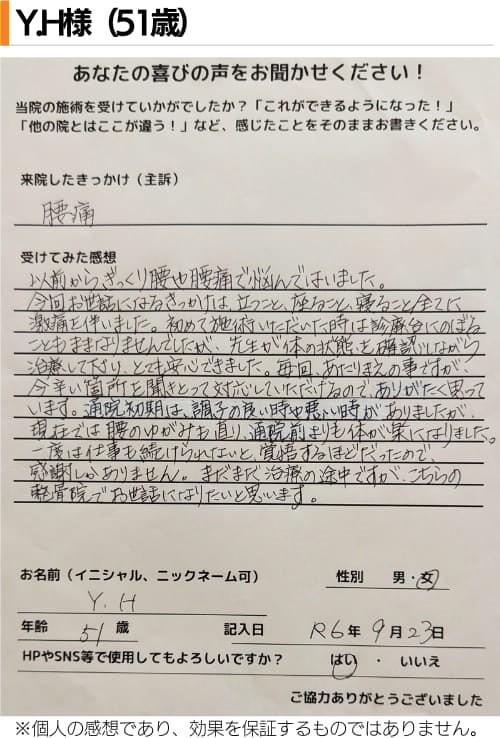 Y.H様（51歳）
あなたの喜びの声をお聞かせください！
当院の施術を受けていかがでしたか？「これができるようになった！」
「他の院とはここが違う！」など、感じたことをそのままお書きください。
来院したきっかけ（主訴）
腰痛
受けてみた感想
以前から、ぎっくり腰や腰痛で悩んではいました。
今回お世話になるきっかけは、立つこと、座ること、寝ること全てに
激痛を伴いました。初めて施術いただいた時は診療台にのぼる
こともままなりませんでしたが、先生が体の状態を確認しながら
治療して下さり、とても安心できました。毎回、あたりまえの事ですが、
今辛い箇所を聞きとって対応していただけるので、ありがたく思って
います。通院初期は、調子の良い時や悪い時がありましたが、
現在では腰のゆがみも直り、通院前よりも体が楽になりました。
一度は仕事も続けられないと、覚悟するほどだったので、
感謝しかありません。まだまだ治療の途中ですが、こちらの
整骨院でお世話になりたいと思います。
お名前（イニシャル、ニックネーム可）　性別　男・女
Y.H
年齢　51　歳　記入日　R6年　9月23日
HPやSNS等で使用してもよろしいですか？　はい　・　いいえ
ご協力ありがとうございました
※個人の感想であり、効果を保証するものではありません。